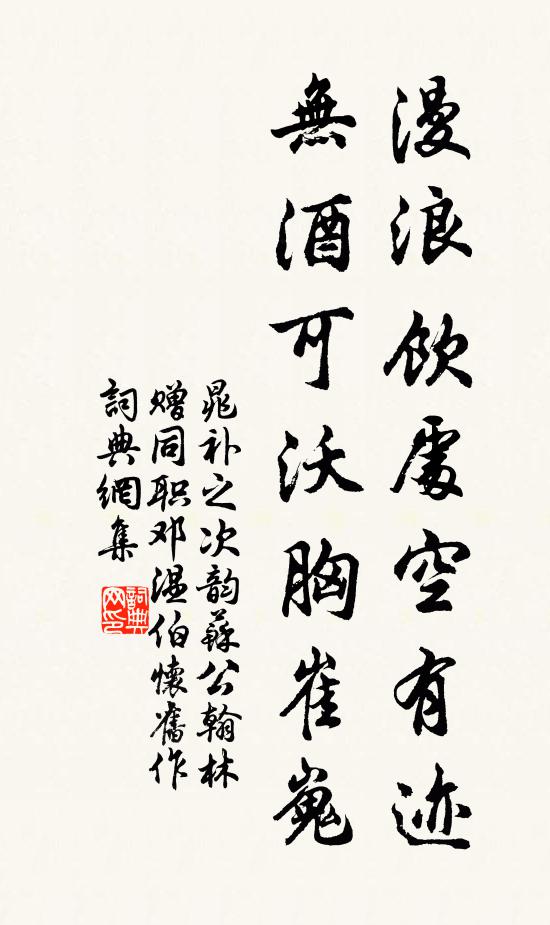 漫浪飲處空有迹
無酒可沃胸崔嵬
晁补之次韵蘇公翰林
赠同职邓温伯懷舊作
詞典網集
詞典網印